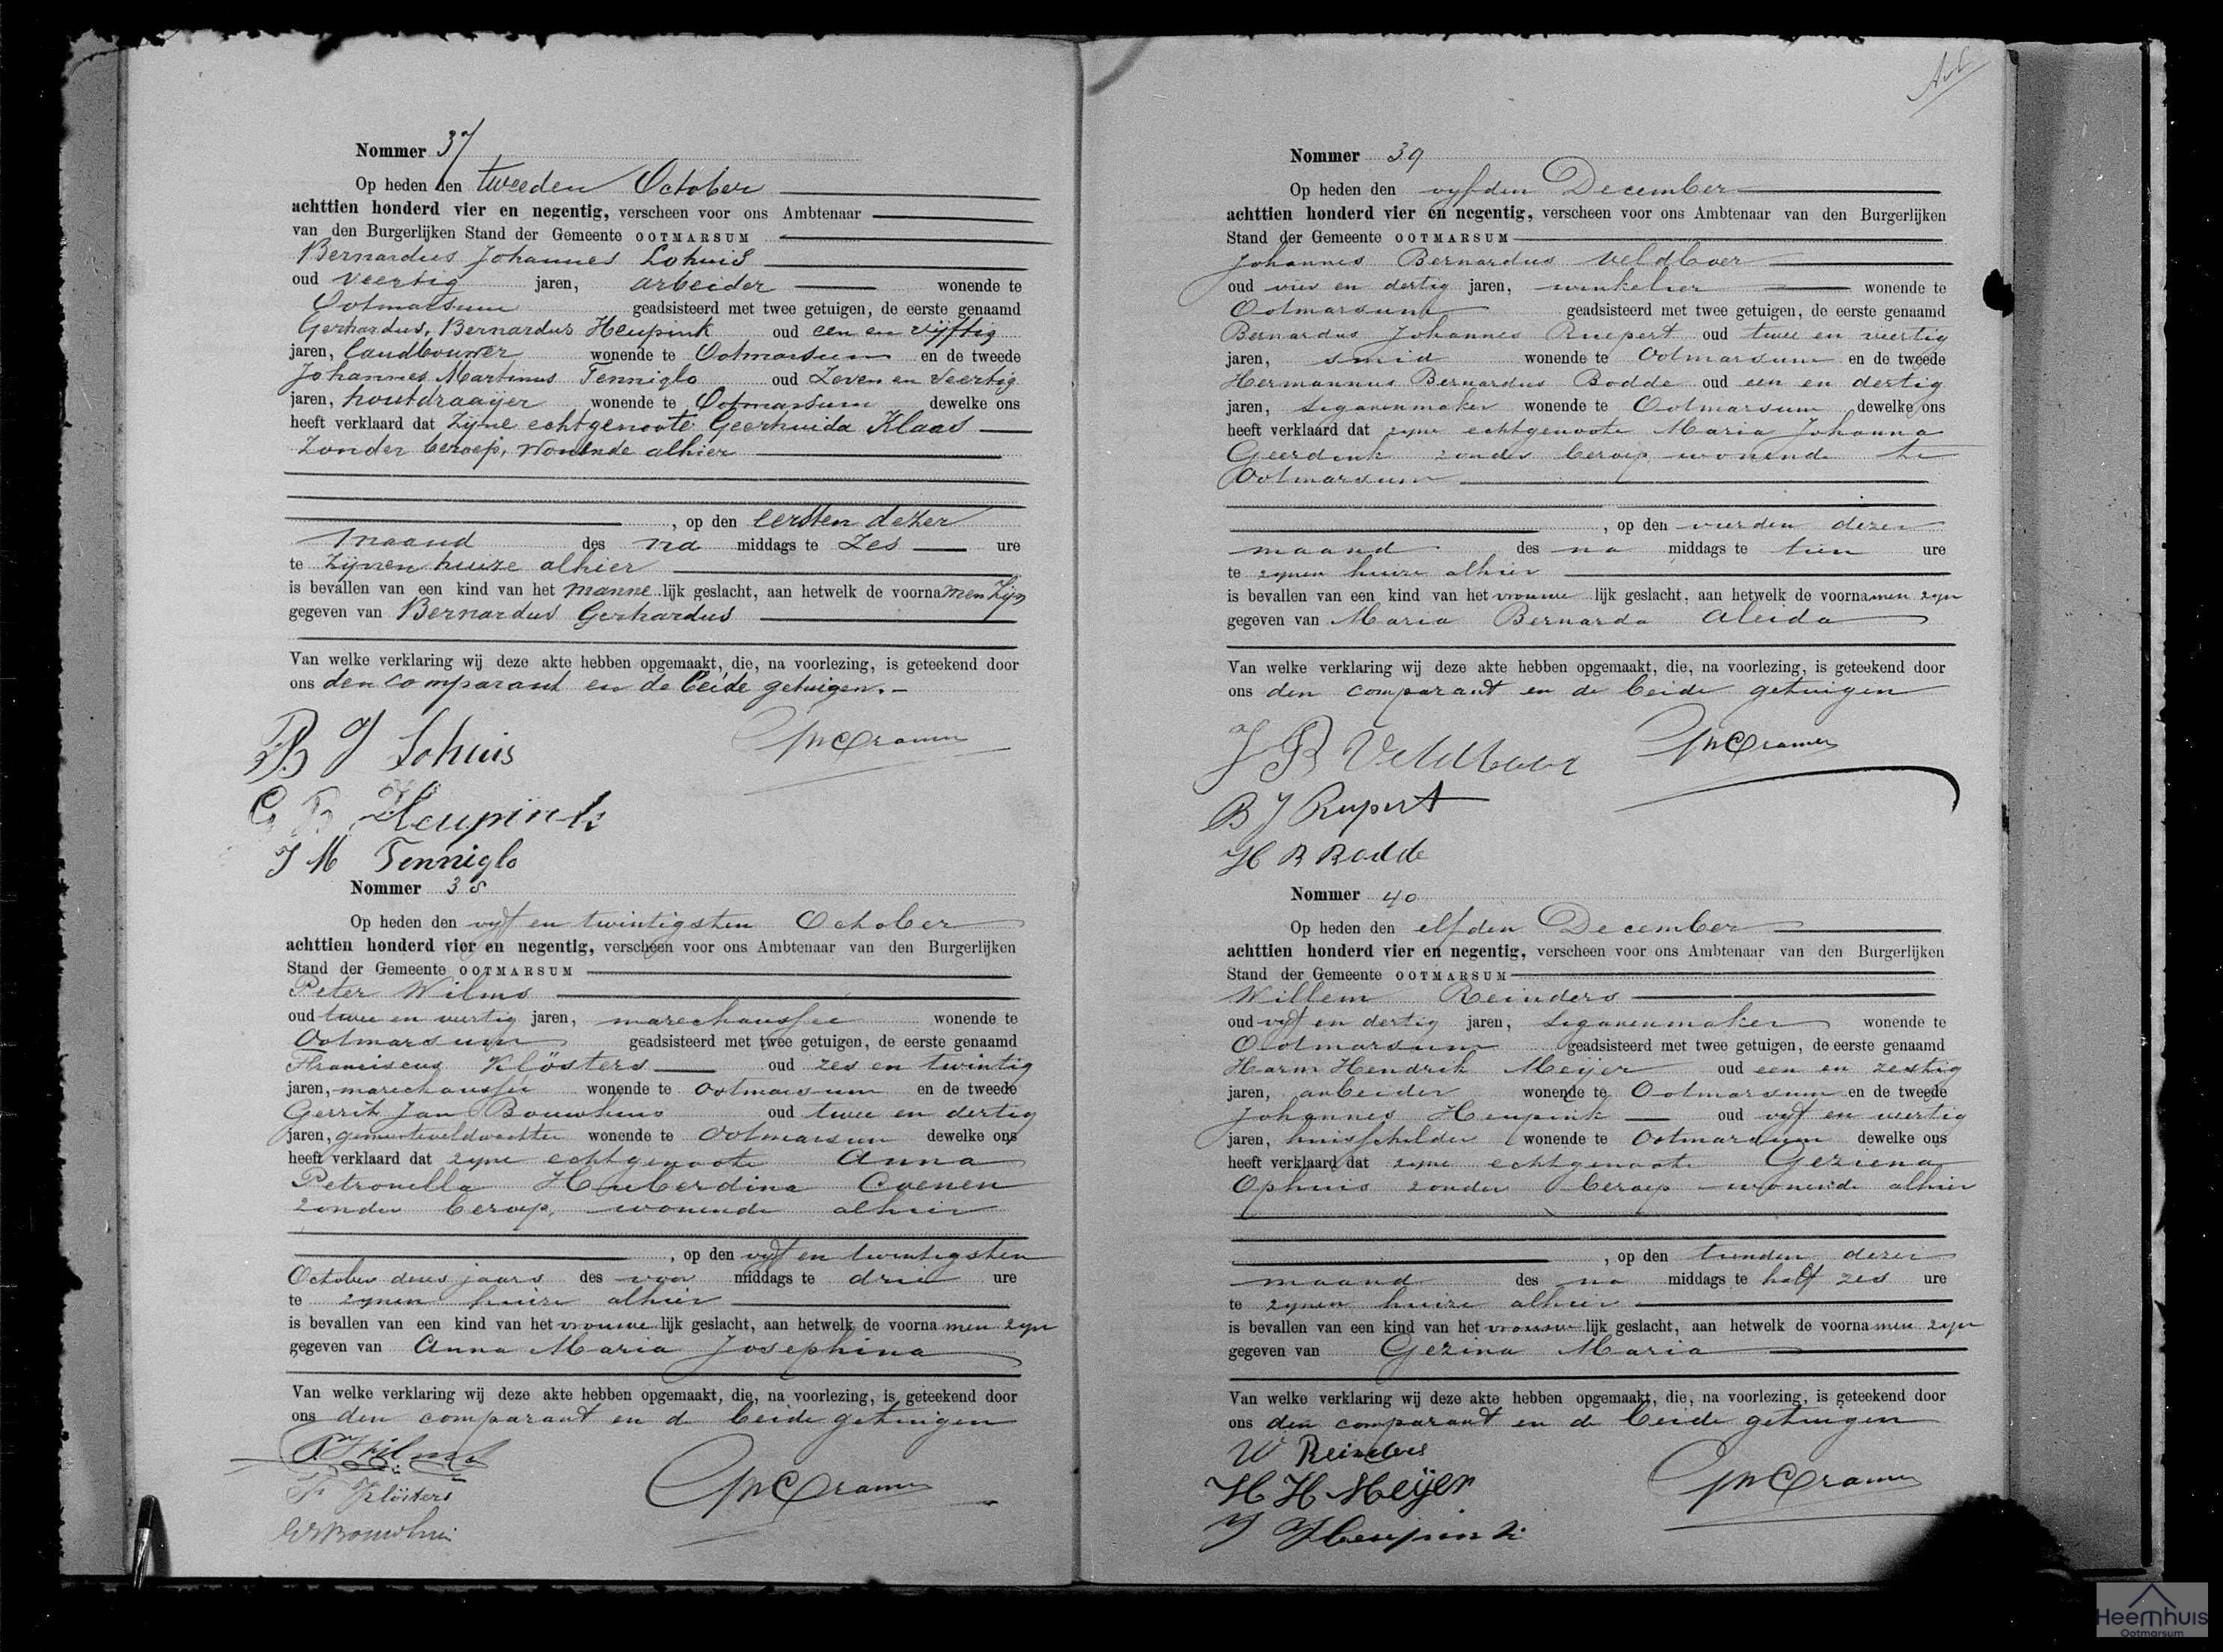 Nommer 37
Op heden den tweeden October
achttien honderd vier en negentig, verscheen voor ons Ambtenaar
van den Burgerlijken Stand der Gemeente OOTMARSUM
Bernardus Johannes Lohuis
oud veertig jaren, arbeider wonende te
Ootmarsum geadsisteerd met twee getuigen, de eerste genaamd
Gerhardus, Bernardus Heupink oud een en vijftig
jaren, landbouwer wonende te Ootmarsum en de tweede
Johannes Martinus Tenniglo oud Zeven en Veertig
jaren, houtdraayer wonende te Ootmarsum dewelke ons
heeft verklaard dat Zijne echtgenoote Geerhuida Klaas
Zonder beroep, Wonende alhier
, op den eersten dezer
maand des na middags te Zes ure
te Zijnen huize alhier
is bevallen van een kind van het manne lijk geslacht, aan hetwelk de voornamen Zijn
gegeven van Bernardus Gerhardus
Van welke verklaring wij deze akte hebben opgemaakt, die, na voorlezing, is geteekend door
ons den comparant en de beide getuigen.
B J Lohuis
Cramer
G B Heupink
J M Tenniglo
Nommer 38
Op heden den vyf en twintigsten October
achttien honderd vier en negentig, verscheen voor ons Ambtenaar van den Burgerlijken
Stand der Gemeente OOTMARSUM
Peter Wilms
oud twee en veertig jaren, marechaussee wonende te
Ootmarsum geadsisteerd met twee getuigen, de eerste genaamd
Franciscus Klösters oud zes en twintig
jaren, marechaussee wonende te Ootmarsum en de tweede
Gerrit Jan Bouwhuis oud twee en dertig
jaren, gemeenteveldwachter wonende te Ootmarsum dewelke ons
heeft verklaard dat zyne echtgenoote Anna
Petronella Huberdina Coenen
zonder beroep, wonende alhier
, op den vyf en twintigsten
October dezes jaars des voor middags te drie ure
te zynen huize alhier
is bevallen van een kind van het vrouwe lijk geslacht, aan hetwelk de voornamen zyn
gegeven van Anna Maria Josephina
Van welke verklaring wij deze akte hebben opgemaakt, die, na voorlezing, is geteekend door
ons den comparant en de beide getuigen
P. Wilms
F Klösters
Cramer
GJ Bouwhuis
Nommer 39
Op heden den vyfden December
achttien honderd vier en negentig, verscheen voor ons Ambtenaar van den Burgerlijken
Stand der Gemeente OOTMARSUM
Johannes Bernardus Veldboer
oud vier en dertig jaren, winkelier wonende te
Ootmarsum geadsisteerd met twee getuigen, de eerste genaamd
Bernardus Johannes Ruepert oud twee en veertig
jaren, smid wonende te Ootmarsum en de tweede
Hermannus Bernardus Bodde oud een en dertig
jaren, sigarenmaker wonende te Ootmarsum dewelke ons
heeft verklaard dat zyne echtgenoote Maria Johanna
Geerdink zonder beroep wonende te
Ootmarsum
, op den vierden dezer
maand des na middags te tien ure
te zynen huize alhier
is bevallen van een kind van het vrouwe lijk geslacht, aan hetwelk de voornamen zyn
gegeven van Maria Bernarda Aleida
Van welke verklaring wij deze akte hebben opgemaakt, die, na voorlezing, is geteekend door
ons den comparant en de beide getuigen
J B Veldboer
Cramer
B J Rupert
H B Bodde
Nommer 40
Op heden den elfden December
achttien honderd vier en negentig, verscheen voor ons Ambtenaar van den Burgerlijken
Stand der Gemeente OOTMARSUM
Willem Reinders
oud vyf en dertig jaren, sigarenmaker wonende te
Ootmarsum geadsisteerd met twee getuigen, de eerste genaamd
Harm Hendrik Meijer oud een en zestig
jaren, arbeider wonende te Ootmarsum en de tweede
Johannes Heupink oud vyf en veertig
jaren, huisschilder wonende te Ootmarsum dewelke ons
heeft verklaard dat zyne echtgenoote Geziena
Ophuis zonder beroep wonende alhier
, op den tienden dezer
maand des na middags te half zes ure
te zynen huize alhier
is bevallen van een kind van het vrouwe lijk geslacht, aan hetwelk de voornamen zyn
gegeven van Gezina Maria
Van welke verklaring wij deze akte hebben opgemaakt, die, na voorlezing, is geteekend door
ons den comparant en de beide getuigen
W Reinders
H H Meijer
Cramer
J Heupink
Heemhuis
Ootmarsum